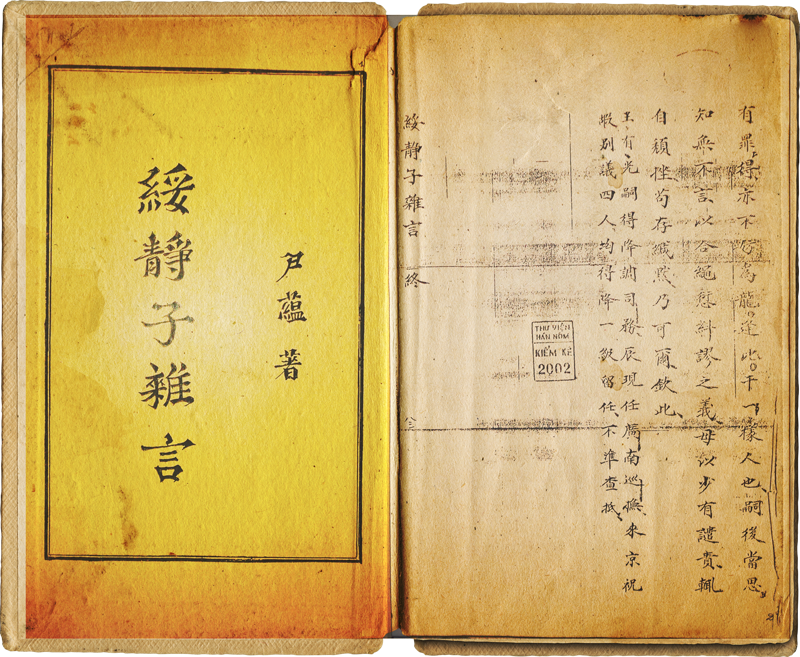 綏靜子雜言
尹蘊著
有罪得亦不為龍逢比干一樣人也嗣後當思
知無不言以合繩愆糾謬之義毋以少有譴責輒
自頹挫苟存緘默乃可爾欽此
王有光嗣得降調司務辰現任廣南巡撫來京祝
嘏別議四人均得降一級留任不準查抵
THƯ VIỆN
HÁN NÔM
KIỂM KÊ
2002
綏靜子雜言 終